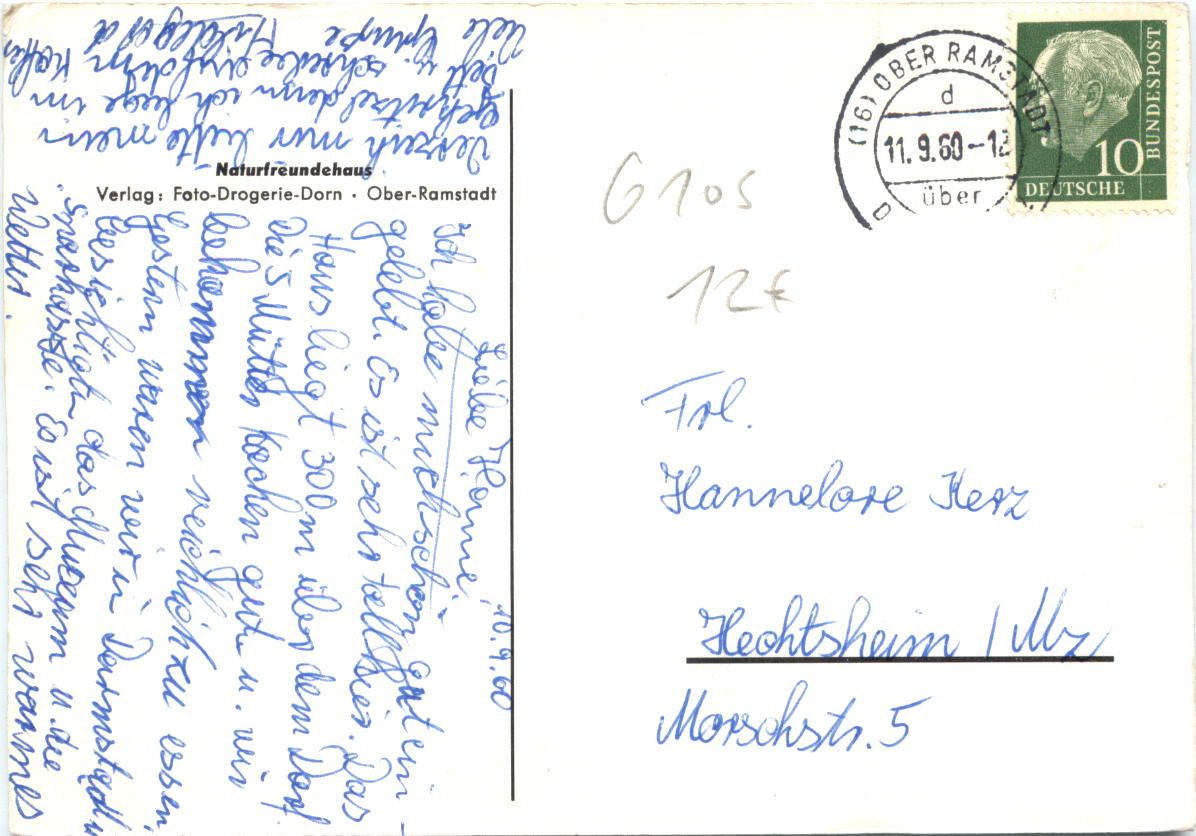 Naturfreundehaus
Verlag: Foto-Drogerie-Dorn · Ober-Ramstadt
10.9.60
Liebe Hanne!
Ich habe mich schon gut ein-
gelebt. Es ist sehr toll hier. Das
Haus liegt 300 m über dem Dorf.
Die 5 Mütter kochen gut u. wir
bekommen reichlich zu essen.
Gestern waren wir in Darmstadt u.
besichtigten das Museum u. die
Sparkasse. Es ist sehr warmes
Wetter.
Verzeih mir bitte mein
denn ich liege im
Bett u. schreibe auf dem Koffer
Viele Grüsse
Hildegard
(16) OBER RAMSTADT
d
11.9.60-12
über
DEUTSCHE
BUNDESPOST
10
G105
12€
Frl.
Hannelore Kerz
Hechtsheim / Mz
Morschstr. 5